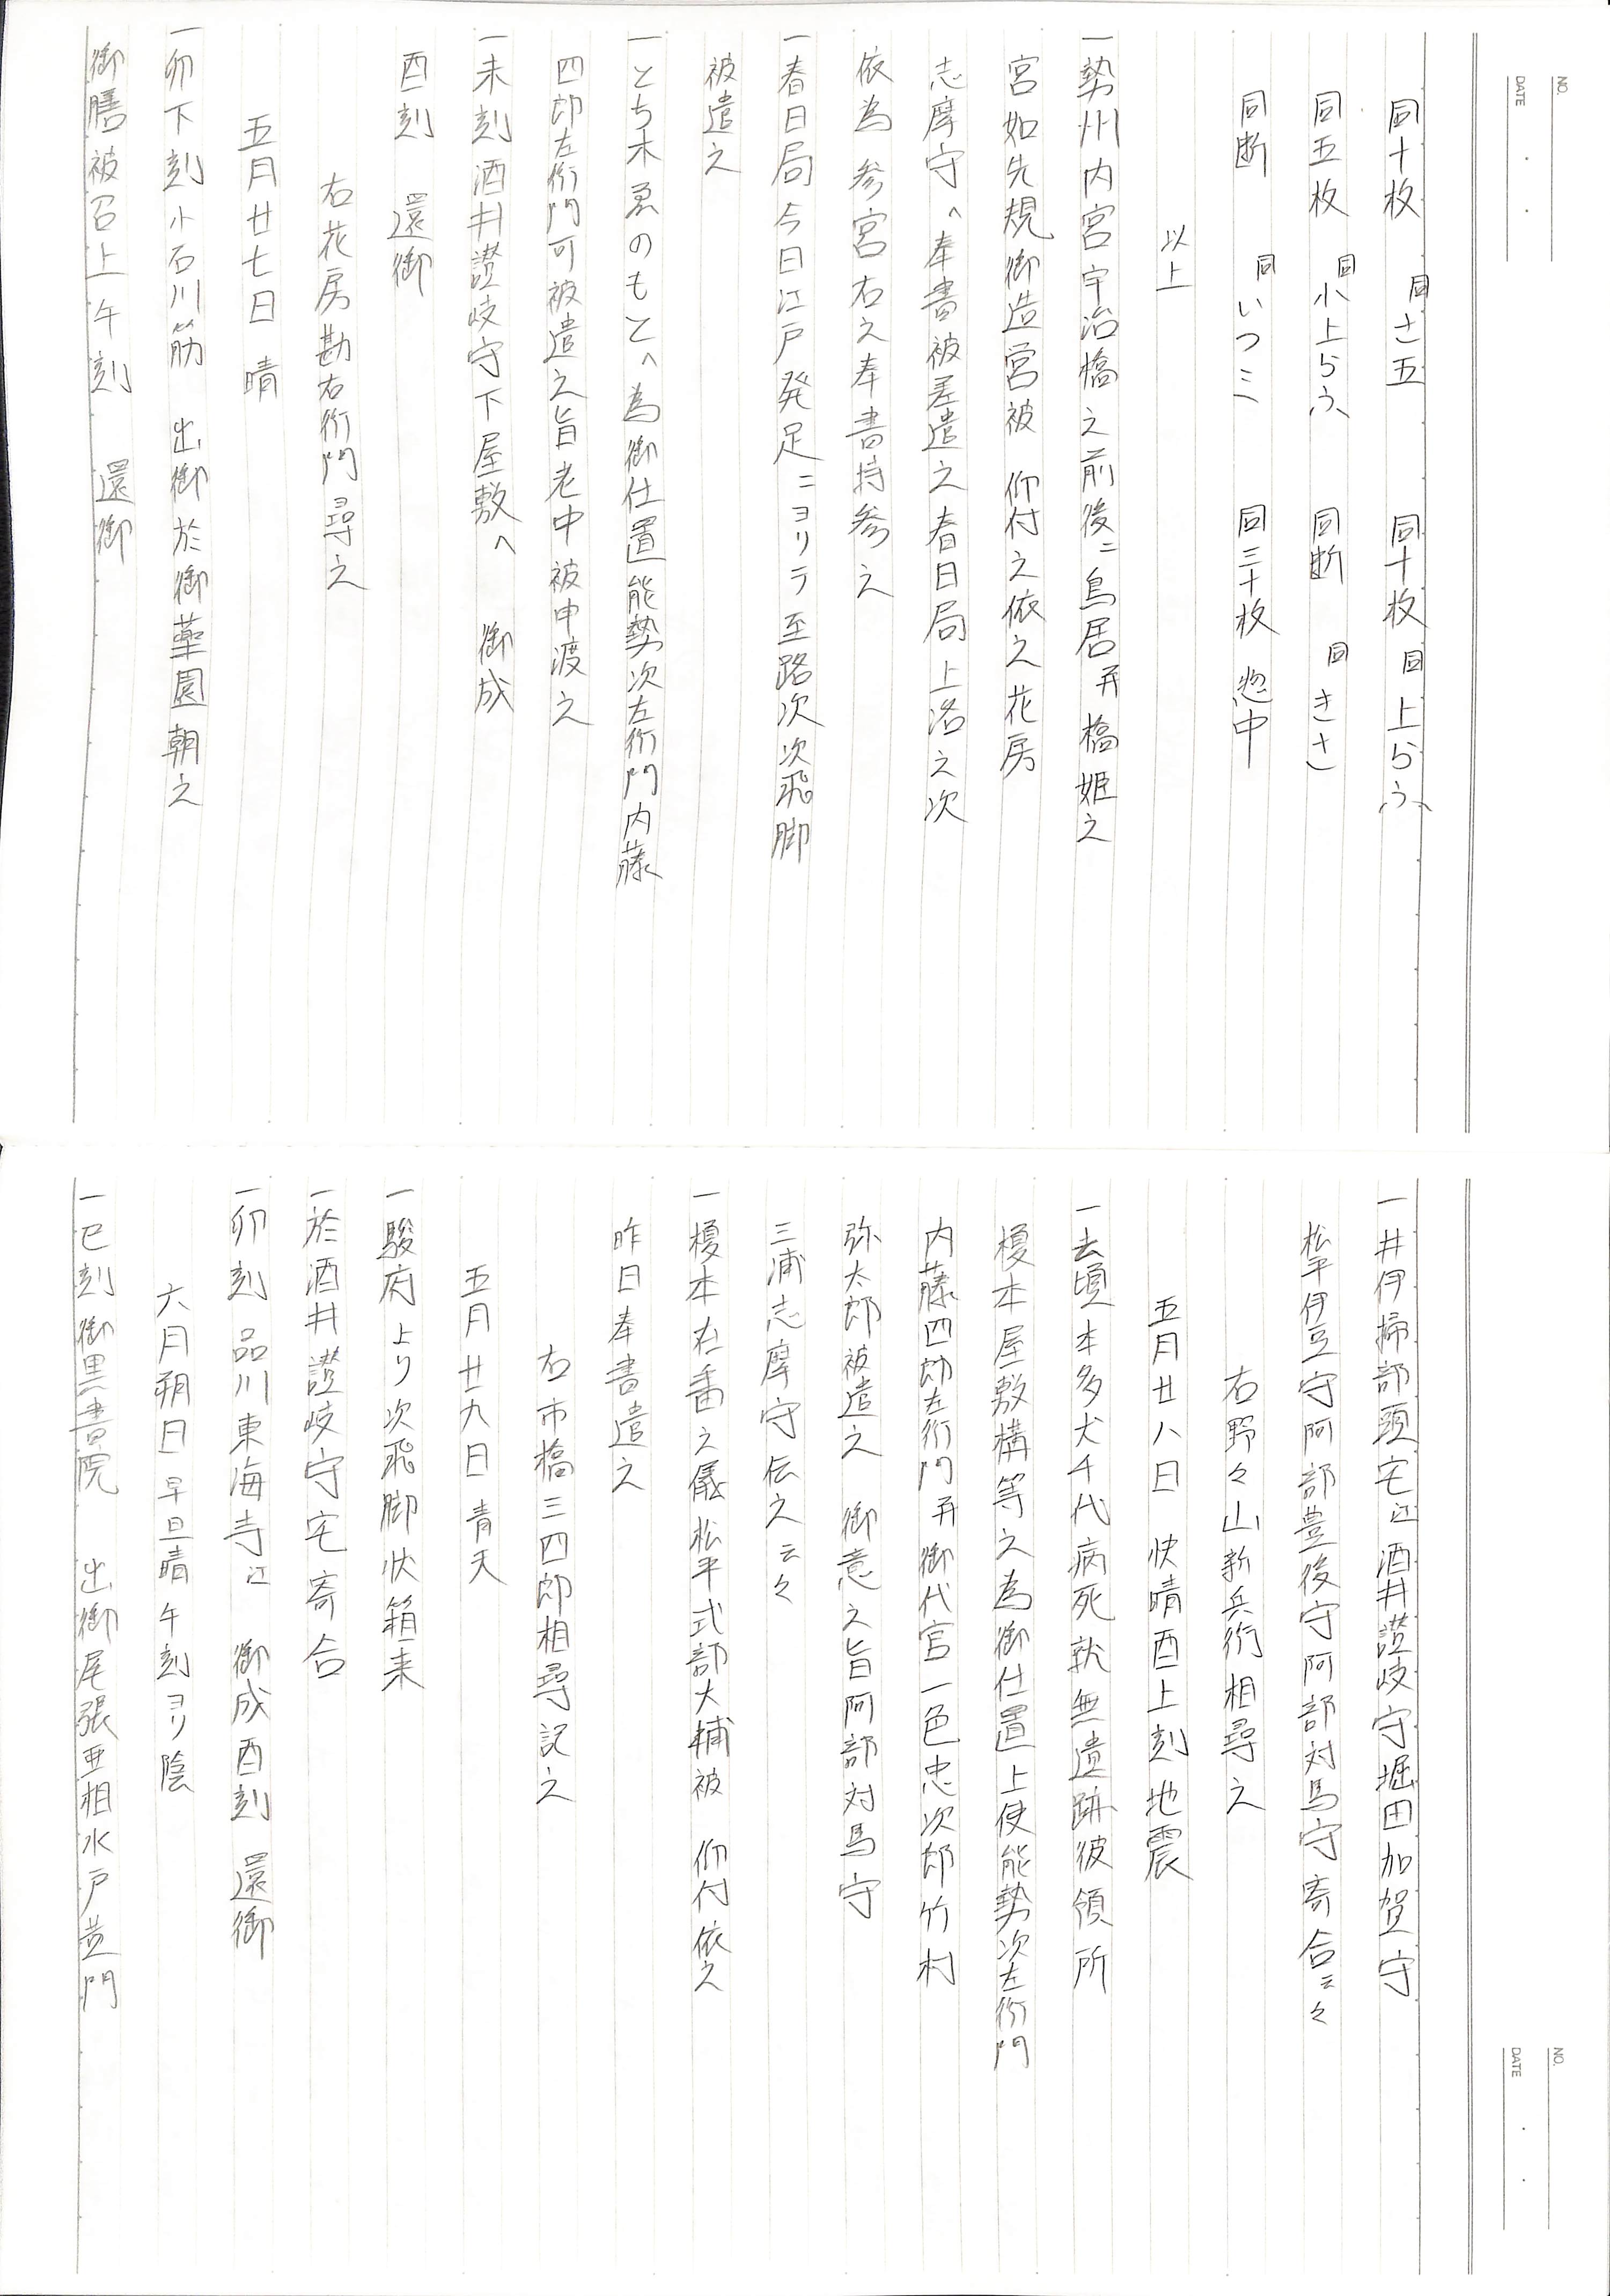 NO.
DATE
同十枚　同さ五　同十枚　同上らふ
同五枚　同小上らふ　同断　同きさ
同断　同いつミ　同三十枚　惣中
以上
一勢州内宮宇治橋之前後ニ鳥居并橋姫之
宮如先規御造宮被　仰付之依之花房
志摩守へ奉書被差遣之春日局上洛之次
依為参宮右之奉書持参之
一春日局今日江戸発足ニヨリテ至路次次飛脚
被遣之
一とち木ゑのもとへ為御仕置能勢次左衛門内藤
四郎左衛門可被遣之旨老中被申渡之
一未刻酒井讃岐守下屋敷へ　御成
酉刻　還御
右花房勘右衛門尋之
五月廿七日　晴
一卯下刻小石川筋　出御於御薬園朝之
御膳被召上午刻　還御
NO.
DATE
一井伊掃部頭宅江酒井讃岐守堀田加賀守
松平伊豆守阿部豊後守阿部対馬守寄合云々
右野々山新兵衛相尋之
五月廿八日　快晴酉上刻地震
一去頃本多犬千代病死就無遺跡彼領所
榎本屋敷構等之為御仕置上使能勢次左衛門
内藤四郎左衛門并御代官一色忠次郎竹村
弥太郎被遣之　御意之旨阿部対馬守
三浦志摩守伝之云々
一榎本在番之儀松平式部大輔被　仰付依之
昨日奉書遣之
右市橋三四郎相尋記之
五月廿九日　青天
一駿府より次飛脚状箱来
一於酒井讃岐守宅寄合
一卯刻　品川東海寺江　御成酉刻　還御
六月朔日　早旦晴午刻ヨリ陰
一巳刻御黒書院　出御尾張亜相水戸黄門